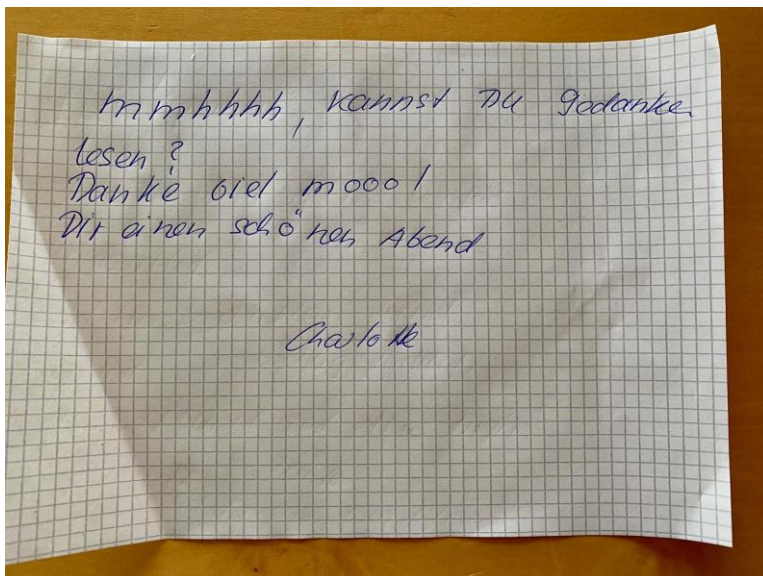 mmhhhh, kannst Du Gedanken
lesen?
Danke viel moool
Dir einen schönen Abend
Charlotte